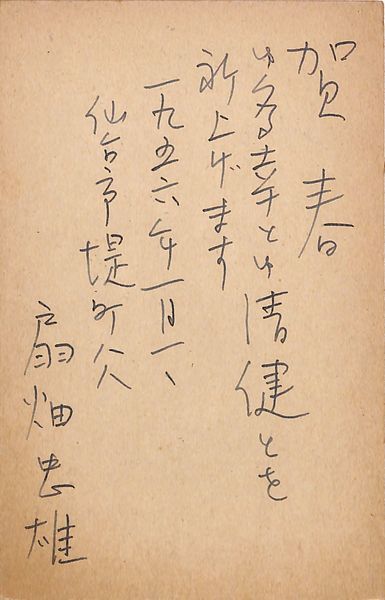 賀春
御多幸と御清健とを
祈上げます
一九五六年一月一日
仙台市堤町
扇畑忠雄